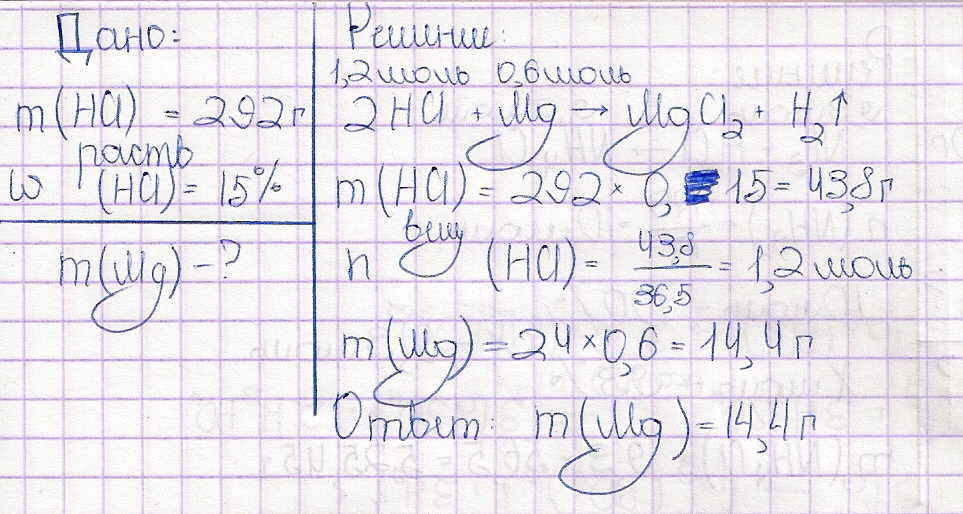 Дано:
m(HCl) = 292г
раств
ω (HCl) = 15%
m(Mg) - ?
Решение:
1,2моль 0,6моль
2HCl + Mg → MgCl₂ + H₂↑
m(HCl) = 292 × 0,15 = 43,8г
вещ
n (HCl) = 43,8/36,5 = 1,2моль
m(Mg) = 24 × 0,6 = 14,4г
Ответ: m(Mg) = 14,4г